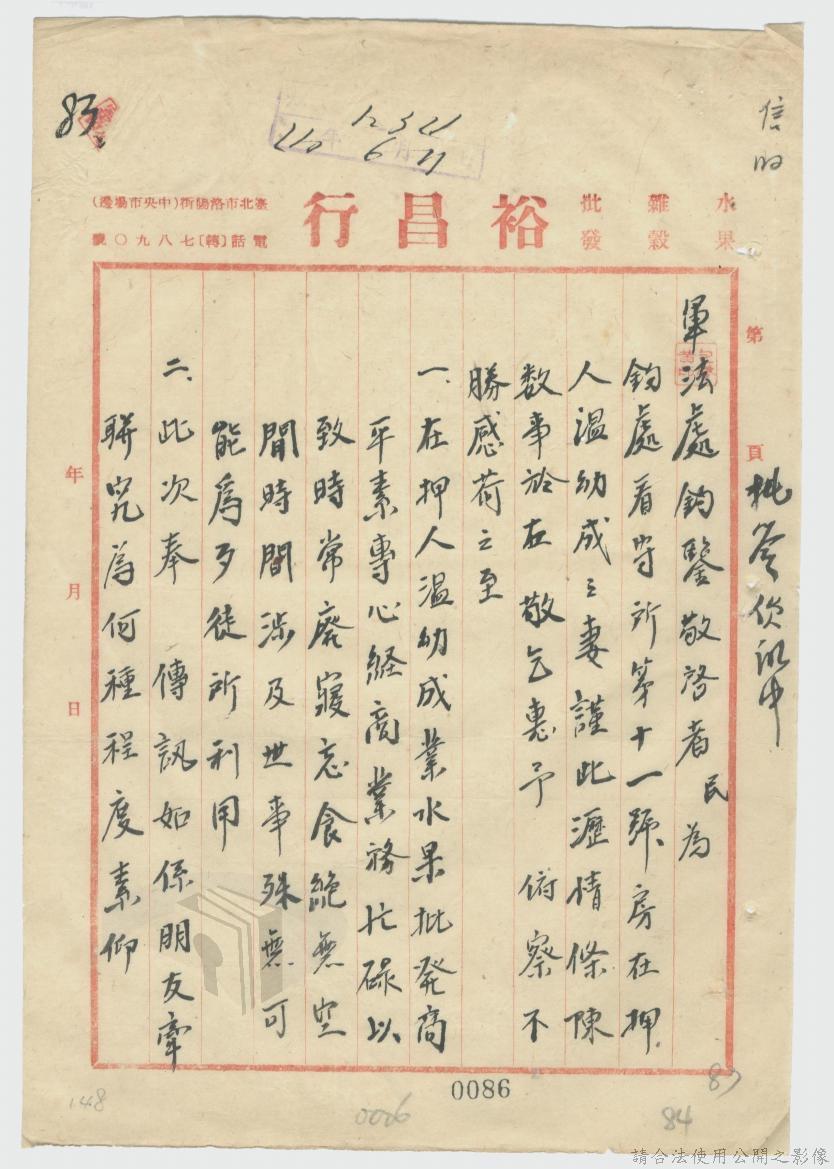 信 昭
83
1234
40 6 11
水果
雜穀
批發
裕昌行
臺北市洛陽街(中央市場邊)
電話(轉)七八九〇號
第 頁
軍法處鈞鑒敬啓者民為
鈞處看守所第十一號房在押
人温幼成之妻謹此瀝情條陳
数事於左敬乞惠予 俯察不
勝感荷之至
一、在押人温幼成業水果批発商
平素專心経商業務忙碌以
致時常廢寢忘食絶無空
閒時間涉及世事殊無可
能為歹徒所利用
二、此次奉 傳訊如係朋友牽
聯究為何種程度素仰
年 月 日
0086
0086
83
84
148
請合法使用公開之影像